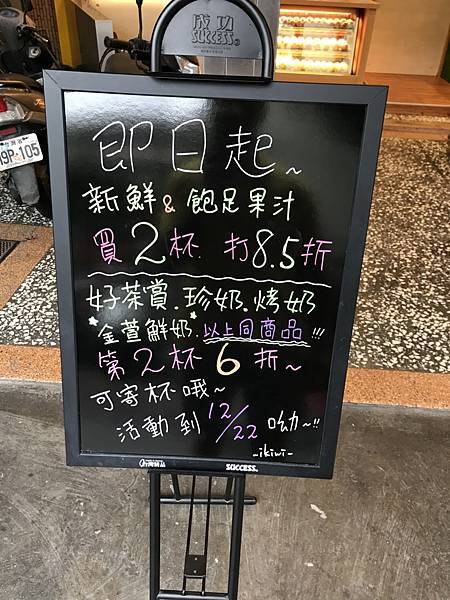 成功
SUCCESS
即日起~
新鮮&飽足果汁
買2杯 打8.5折
好茶賞.珍奶.烤奶
金萱鮮奶.以上同商品!!!
第2杯6折~
可寄杯哦~
活動到12/22呦~!!
-ikiwi-
SUCCESS.
9P-105